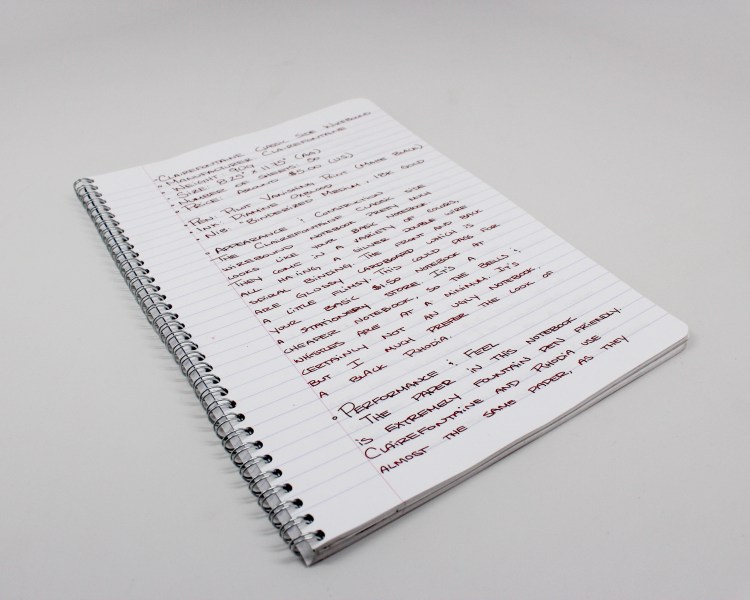 • Clairefontaine Classic Side Wirebound
• Manufacturer: Clairefontaine
• Weight: 90g
• Size: 8.25" x 11.75" (A4)
• Number of Sheets: 50
• Price: Around $9.00 (US)
• Pen: Pilot Vanishing Point (Matte Black)
• Ink: Diamine Oxblood
• Nib: Binderized Medium, 18k Gold
• Appearance & Construction
The Clairefontaine Classic Side
Wirebound Notebook pretty much
looks like your basic notebook.
They come in a variety of colors,
all having a silver double wire
spiral binding. The front and back
are glossy cardboard which is
a little flimsy. This could pass for
your basic $1.50 notebook at
a stationery store. It's a
cheaper notebook, so the bells &
whistles are at a minimum. It's
certainly not an ugly notebook,
but I much prefer the look of
a black Rhodia.
• Performance & Feel
The paper in this notebook
is extremely fountain pen friendly.
Clairefontaine and Rhodia use
almost the same paper, as they